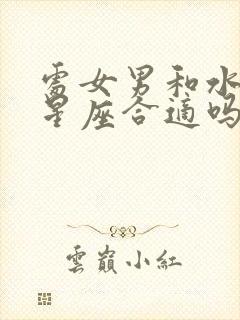 处女男和水
星座合適吗
雲巔小紅